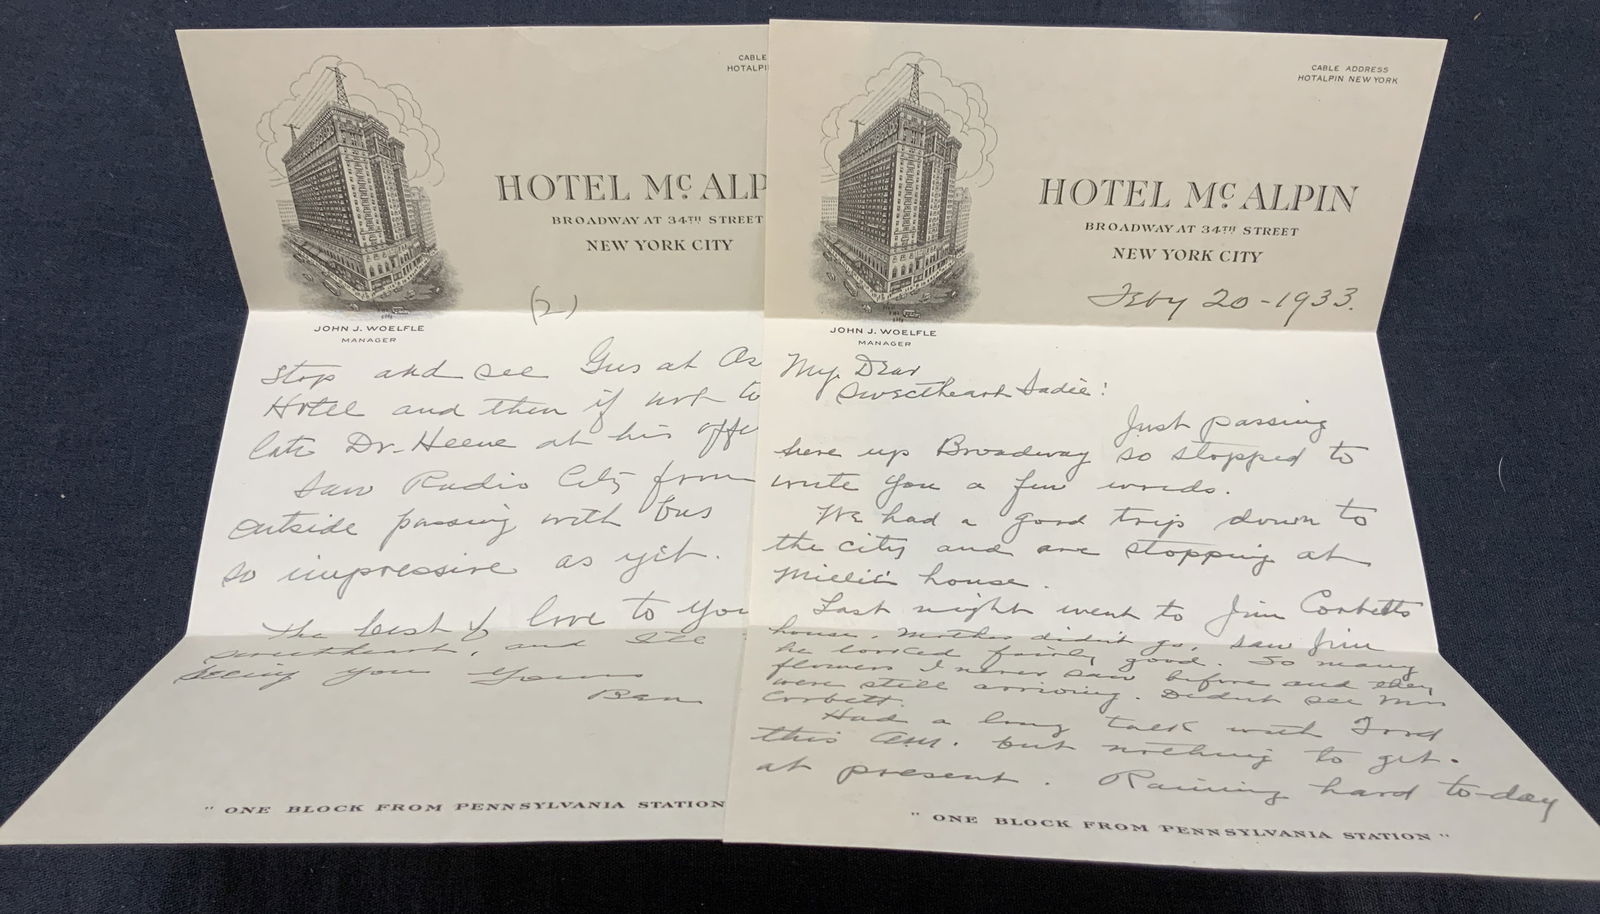 CABLE
HOTALPI
HOTEL McALP
BROADWAY AT 34TH STREET
NEW YORK CITY
(2)
JOHN J. WOELFLE
MANAGER
stop and see Gus at As
Hotel and then if not to
late Dr. Heene at his offi
Saw Radio City from
outside passing with bus
so impressive as yet.
the best of love to you
sweetheart, and
seeing you Yours
Ben
" ONE BLOCK FROM PENNSYLVANIA STATION
CABLE ADDRESS
HOTALPIN NEW YORK
HOTEL McALPIN
BROADWAY AT 34TH STREET
NEW YORK CITY
Feby 20-1933.
JOHN J. WOELFLE
MANAGER
My Dear
Sweetheart Sadie:
Just passing
here up Broadway so stopped to
write you a few words.
We had a good trip down to
the city and are stopping at
Millie's house.
Last night went to Jim Corbetts
house. Mother didn't go, saw Jim
he looked fairly good. So many
flowers I never saw before and they
were still arriving. Didn't see Mrs
Corbett.
Had a long talk with Ford
this am. but nothing to get.
at present. Raining hard to-day
" ONE BLOCK FROM PENNSYLVANIA STATION "